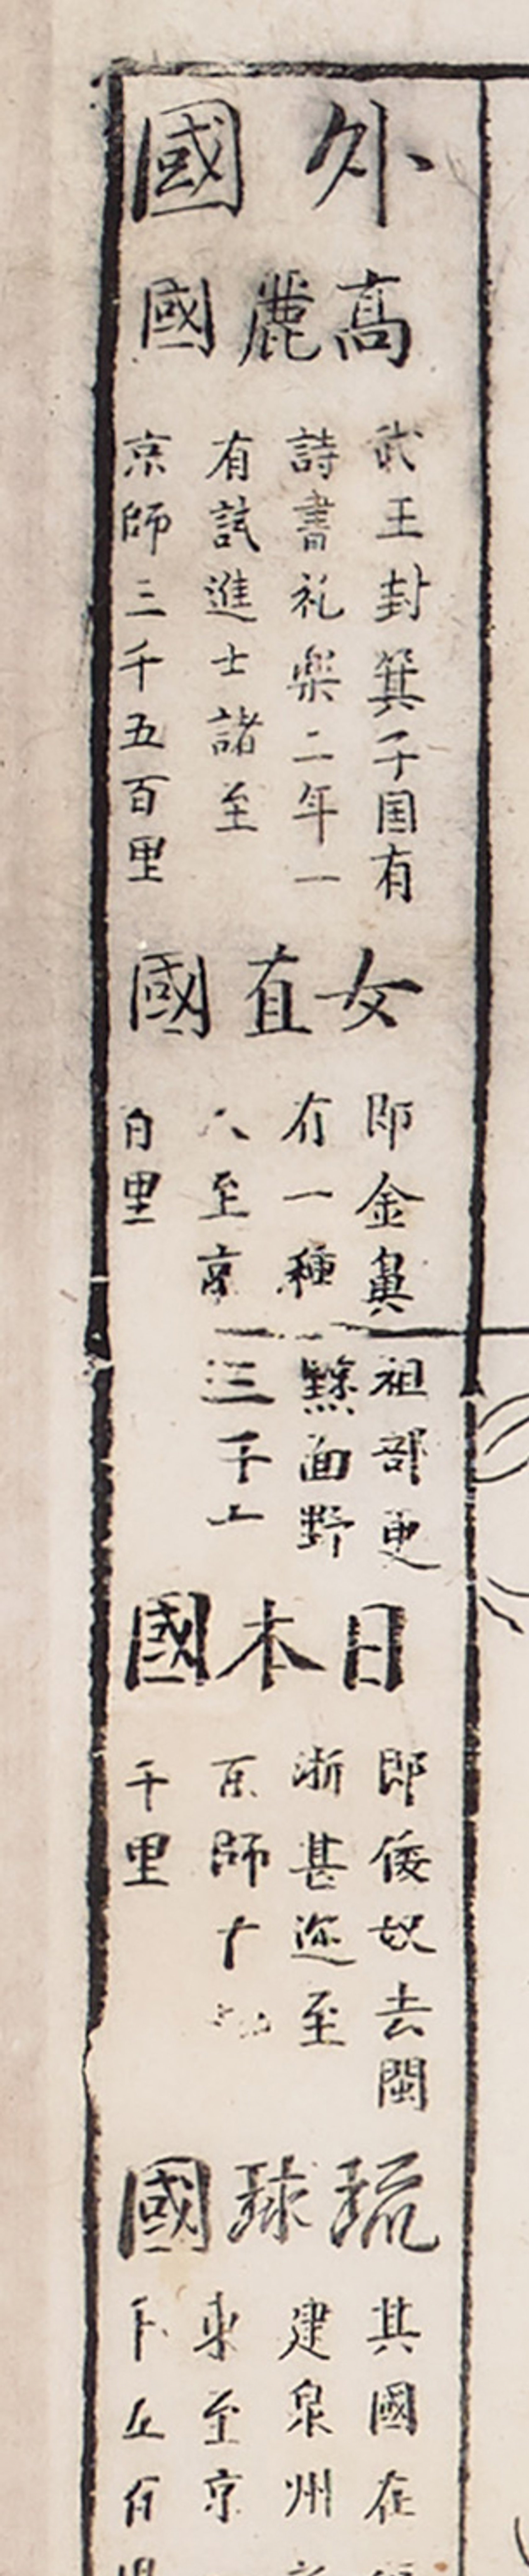 外國
高麗國
武王封箕子国有
詩書礼樂二年一
有試進士諸至
京師三千五百里
女直國
即金鼻祖部更
有一種黥面野
人至京三千
百里
日本國
即倭奴去閩
浙甚迩至
京師十
千里
琉球國
其國在
建泉州
東至京